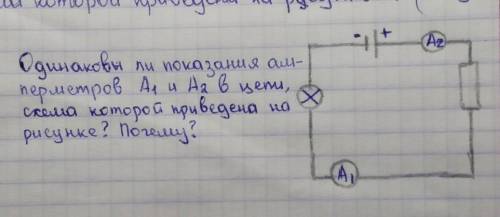 которой приведена на
Одинаковы ли показания ам-
перметров А1 и А2 в цепи,
схема которой приведена на
рисунке? Почему?
- +
А2
А1